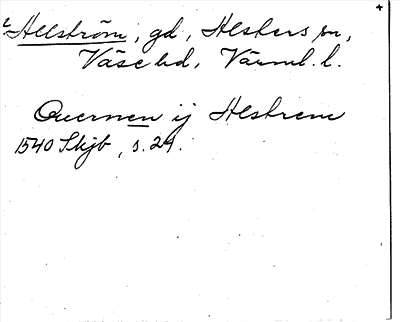 Alström, gd, Alsters sn,
Väse hd, Värml. l.
Quernen ij Alstrem
1540 Skjb, s. 29.